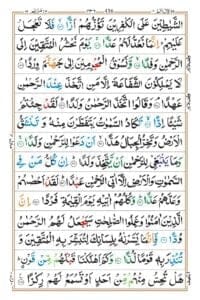 الشَّيٰطِيْنَ عَلَى الْكٰفِرِيْنَ تَؤُزُّهُمْ اَزًّا ۙ فَلَا تَعْجَلْ
عَلَيْهِمْ ؕ اِنَّمَا نَعُدُّ لَهُمْ عَدًّا ۚ يَوْمَ نَحْشُرُ الْمُتَّقِيْنَ اِلَى
الرَّحْمٰنِ وَفْدًا ۙ وَّنَسُوْقُ الْمُجْرِمِيْنَ اِلٰى جَهَنَّمَ وِرْدًا ۘ
لَا يَمْلِكُوْنَ الشَّفَاعَةَ اِلَّا مَنِ اتَّخَذَ عِنْدَ الرَّحْمٰنِ
عَهْدًا ۘ وَقَالُوا اتَّخَذَ الرَّحْمٰنُ وَلَدًا ؕ لَقَدْ جِئْتُمْ
شَيْـًٔا اِدًّا ۙ تَكَادُ السَّمٰوٰتُ يَتَفَطَّرْنَ مِنْهُ وَتَنْشَقُّ
الْاَرْضُ وَتَخِرُّ الْجِبَالُ هَدًّا ۙ اَنْ دَعَوْا لِلرَّحْمٰنِ وَلَدًا ۚ
وَمَا يَنْۢبَغِيْ لِلرَّحْمٰنِ اَنْ يَّتَّخِذَ وَلَدًا ؕ اِنْ كُلُّ مَنْ فِي
السَّمٰوٰتِ وَالْاَرْضِ اِلَّاۤ اٰتِي الرَّحْمٰنِ عَبْدًا ؕ لَقَدْ اَحْصٰىهُمْ
وَعَدَّهُمْ عَدًّا ؕ وَكُلُّهُمْ اٰتِيْهِ يَوْمَ الْقِيٰمَةِ فَرْدًا اِنَّ
الَّذِيْنَ اٰمَنُوْا وَعَمِلُوا الصّٰلِحٰتِ سَيَجْعَلُ لَهُمُ الرَّحْمٰنُ
وُدًّا فَاِنَّمَا يَسَّرْنٰهُ بِلِسَانِكَ لِتُبَشِّرَ بِهِ الْمُتَّقِيْنَ وَ
تُنْذِرَ بِهٖ قَوْمًا لُّدًّا وَكَمْ اَهْلَكْنَا قَبْلَهُمْ مِّنْ قَرْنٍ ؕ
هَلْ تُحِسُّ مِنْهُمْ مِّنْ اَحَدٍ اَوْ تَسْمَعُ لَهُمْ رِكْزًا